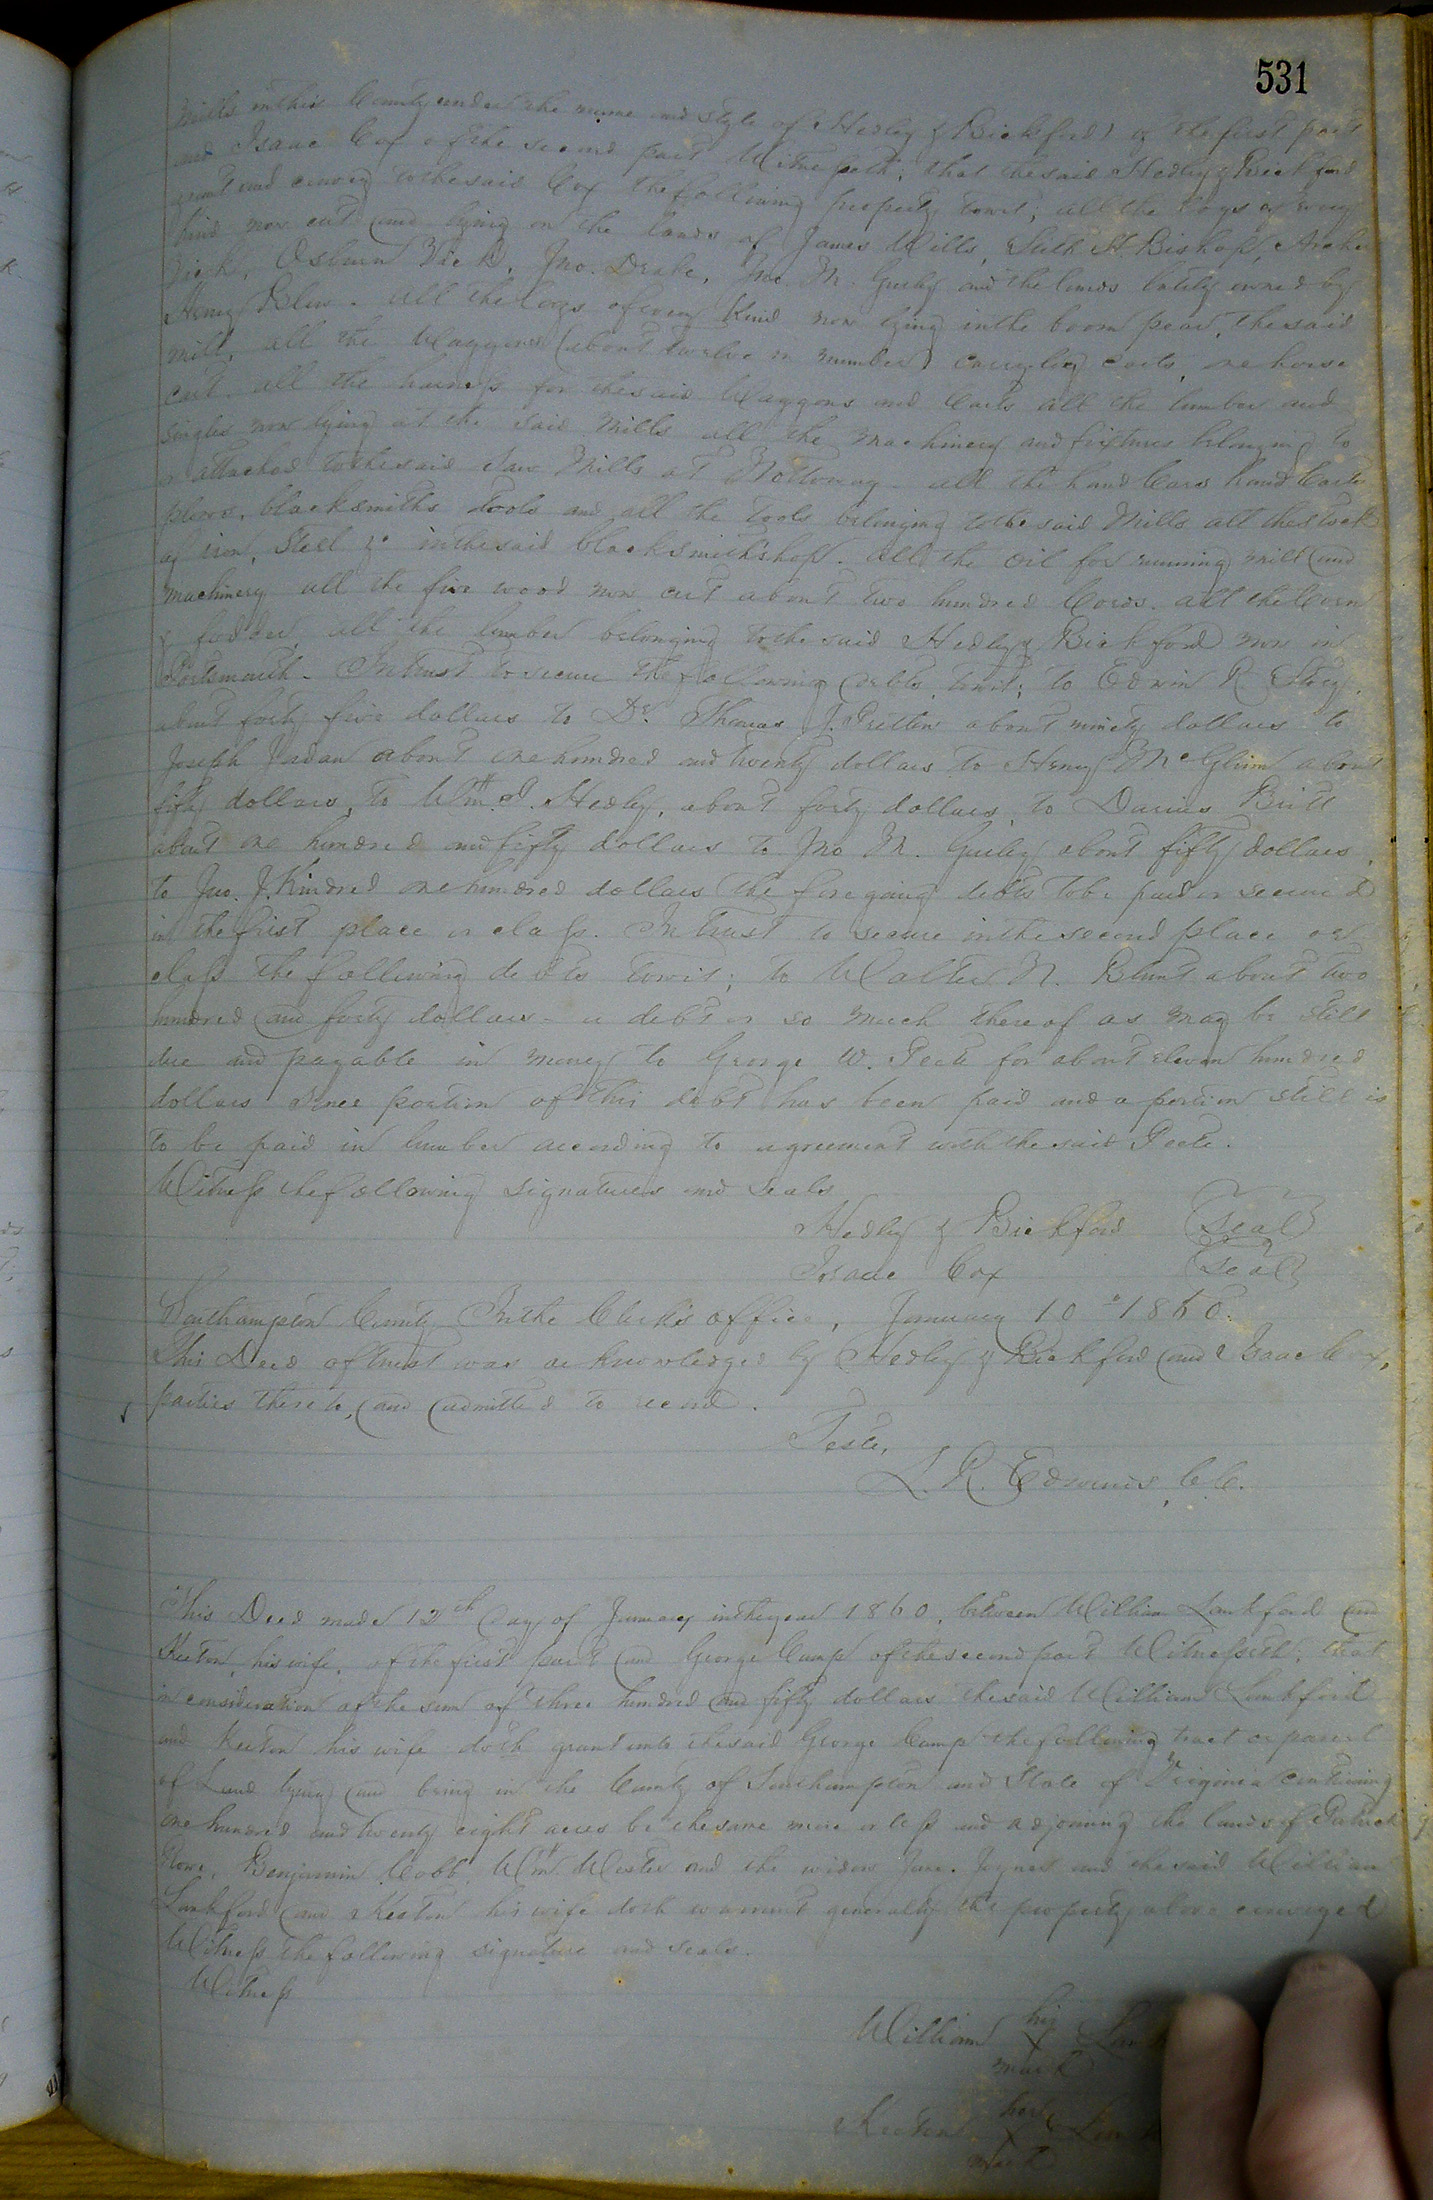 531
Mills in this County under the name and style of Hedley & Bickford) of the first part
and Isaac Cox of the second part Witnesseth; that the said Hedley & Bickford
grant and convey to the said Cox the following property towit; all the logs of every
kind now cut and lying on the lands of James Mills, H. Bishop,
Osburn Vick, Jno. Drake, Jno. M. Gurley and the lands lately owned by
Henry Blow. all the logs of every Kind now lying in the boom near the said
mill, all the Waggons (about twelve in number) carrylog carts, one horse
cart all the harness for the said Waggons and Carts all the lumber and
singles now lying at the said Mills all the machinery and fixtures belonging to
or attached to the said Saw Mills at Nottoway - all the hand Cars hand Carts
plows, blacksmiths tools and all the tools belonging to the said Mills all the stock
of iron, Steel &c in the said blacksmith shop. all the oil for running mill and
machinery all the fire wood now cut about two hundred Cords. all the Corn
& fodder, all the lumber belonging to the said Hedley & Bickford now in
Portsmouth. In trust to secure the following debts, towit; to Edwin R
about forty five dollars to Dr. Thomas J. Pretlow about ninety dollars to
Joseph Jordan about one hundred and twenty dollars to Henry McGlinn about
fifty dollars, to Wm. J. Hedley, about forty dollars, to Darius Britt
about one hundred and fifty dollars to Jno M. Gurley about fifty dollars,
to Jno. J. Kindred one hundred dollars the foregoing debts to be paid or secured
in the first place or class. In trust to secure in the second place or
class the following debts towit; to Walter N. Blunt about two
hundred and forty dollars - a debt or so much thereof as may be still
due and payable in money to George W. Peete for about eleven hundred
dollars Since portion of this debt has been paid and a portion still is
to be paid in lumber according to agreement with the said Peete.
Witness the following signatures and seals
Hedley & Bickford (Seal)
Isaac Cox (Seal)
Southampton County In the Clerk's office, January 10th 1860.
This Deed of trust was acknowledged by Hedley & Bickford and Isaac Cox,
parties thereto, and admitted to record.
Teste,
L. R. Edwards, C.C.
This Deed made 12th day of January in the year 1860, between William Lankford and
Keeton, his wife, of the first part and George Camp of the second part Witnesseth; that
in consideration of the sum of three hundred and fifty dollars the said William Lankford
and Keeton his wife doth grant unto the said George Camp the following tract or parcel
of Land lying and being in the County of Southampton and State of Virginia containing
one hundred and twenty eight acres be the same more or less and adjoining the lands of Patrick
Benjamin Cobb, Wm. Wester and the widow Jane. Joyner and the said William
Lankford and Keeton his wife doth warrant generally the property above conveyed
Witness the following signature and seals.
Witness
his
William X Lank
mark
her
Keeton X Lank
mark